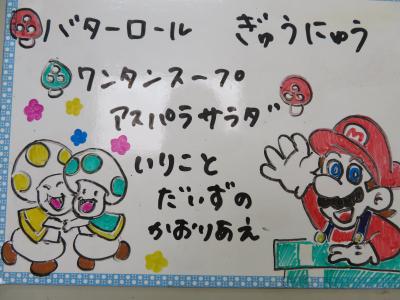 バターロール ぎゅうにゅう
ワンタンスープ
アスパラサラダ
いりこと
だいずの
かおりあえ
M